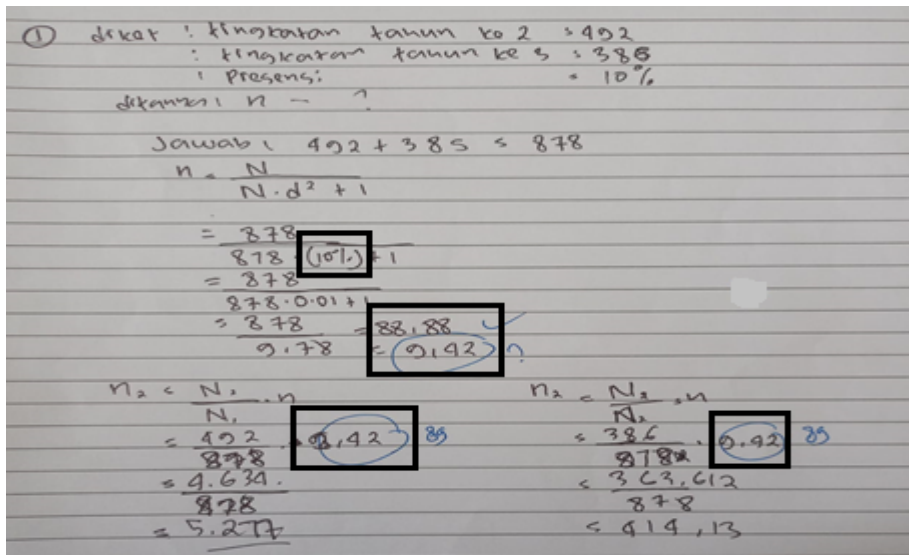 ① diket : tingkatan tahun ke 2 = 492
: tingkatan tahun ke 3 = 386
: Presensi = 10%
ditanya : n = ?
Jawab : 492 + 385 = 878
n = N
N . d² + 1
= 878
878 . (10%) + 1
= 878
878 . 0.01 + 1
= 878 = 88,88 ✓
9.78 = 9,42 ?
n₂ = N₂ . n
N₁
= 492 . 9,42 89
878
= 4.634.
878
= 5.277
n₂ = N₂ . n
N₁
= 386 . 9.42 89
878
= 363,612
878
= 414,13